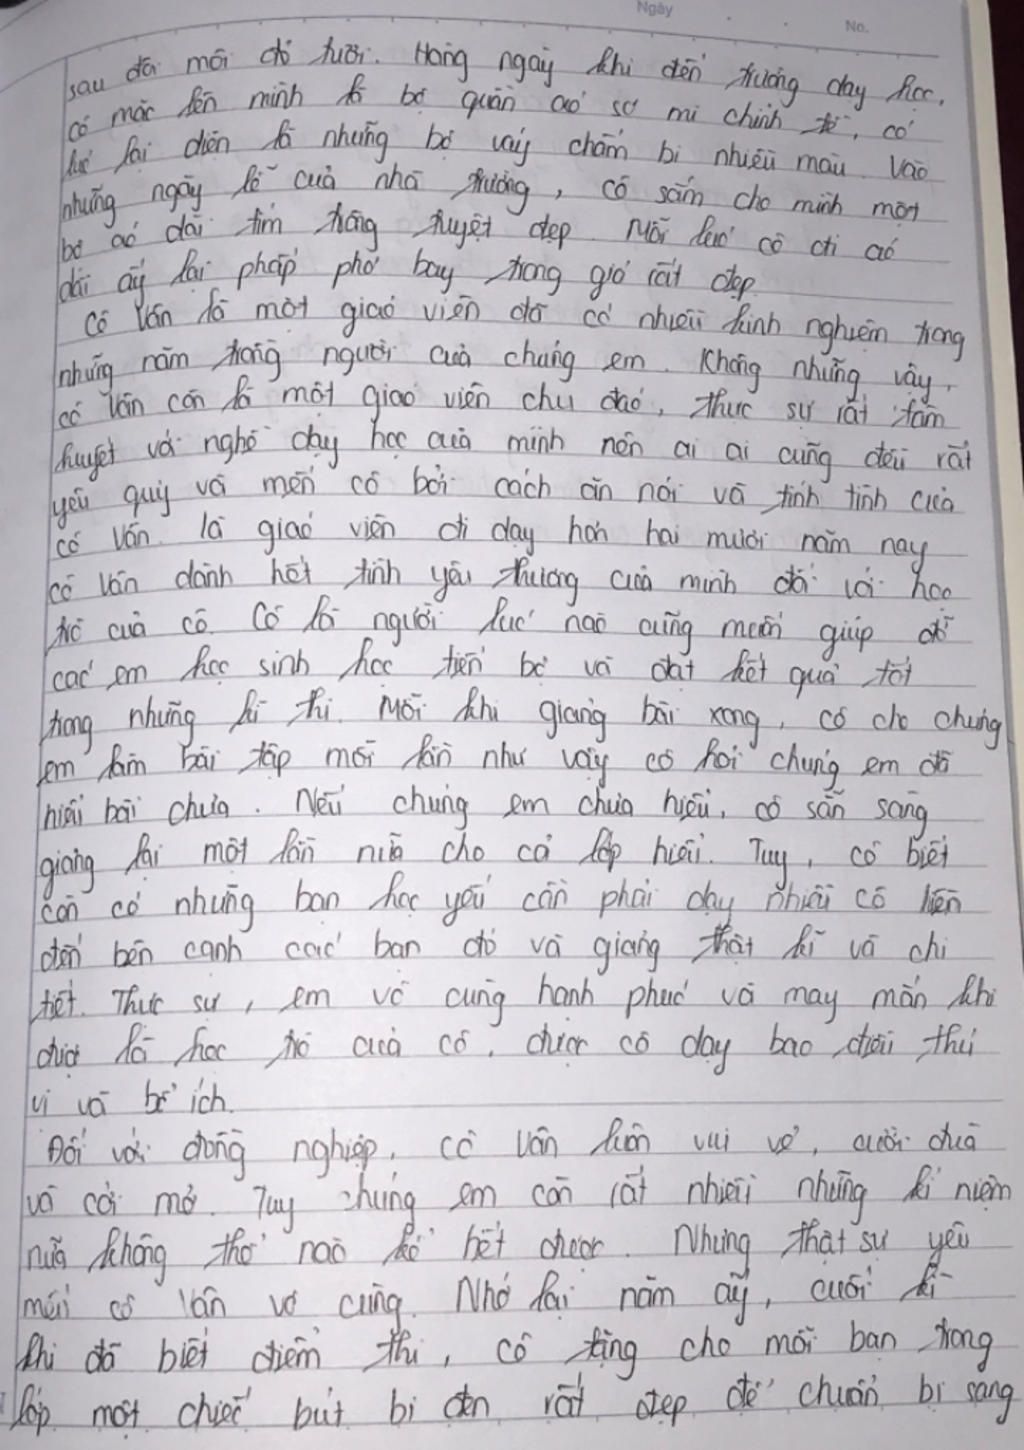 Ngày
No.
sau đôi môi đỏ tươi. Hàng ngày khi đến trường dạy học,
cô mặc lên mình là bộ quần áo sơ mi chỉnh tề, có
lúc lại diện là những bộ váy chấm bi nhiều màu. Vào
những ngày lễ của nhà trường, cô sắm cho mình một
bộ áo dài tím trông tuyệt đẹp. Mỗi lúc cô đi áo
dài ấy lại phấp phớ bay trong gió rất đẹp
Cô Vân là một giáo viên đã có nhiều kinh nghiệm trong
những năm trồng người của chúng em. Không những vậy,
cô Vân còn là một giáo viên chu đáo, thực sự rất tâm
huyết với nghề dạy học của mình nên ai ai cũng đều rất
yêu quý và mến cô bởi cách ăn nói và tính tình của
cô Vân. Là giáo viên đi dạy hơn hai mươi năm nay
cô Vân dành hết tình yêu thương của mình đối với học
trò của cô. Cô là người lúc nào cũng muốn giúp đỡ
các em học sinh học tiến bộ và đạt kết quả tốt
trong những kì thi. Mỗi khi giảng bài xong, cô cho chúng
em làm bài tập mỗi lần như vậy cô hỏi chúng em đã
hiểu bài chưa. Nếu chúng em chưa hiểu, cô sẵn sàng
giảng lại một lần nữa cho cả lớp hiểu. Tuy, cô biết
còn có những bạn học yếu cần phải dạy nhiều cô liền
đến bên cạnh các bạn đó và giảng thật kĩ và chi
tiết. Thực sự, em vô cùng hạnh phúc và may mắn khi
được là học trò của cô, được cô dạy bao điều thú
vị và bổ ích.
Đối với đồng nghiệp, cô Vân luôn vui vẻ, cười đùa
và cởi mở. Tuy chúng em còn rất nhiều những kỉ niệm
nữa không thể nào kể hết được. Nhưng thật sự yêu
mến cô Vân vô cùng. Nhớ lại năm ấy, cuối kì
khi đã biết điểm thi, cô tặng cho mỗi bạn trong
lớp một chiếc bút bi đen rất đẹp để chuẩn bị sang